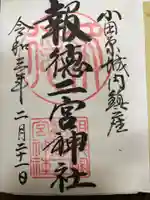 小田原城内鎮座
報徳二宮神社
令和三年二月二十一日